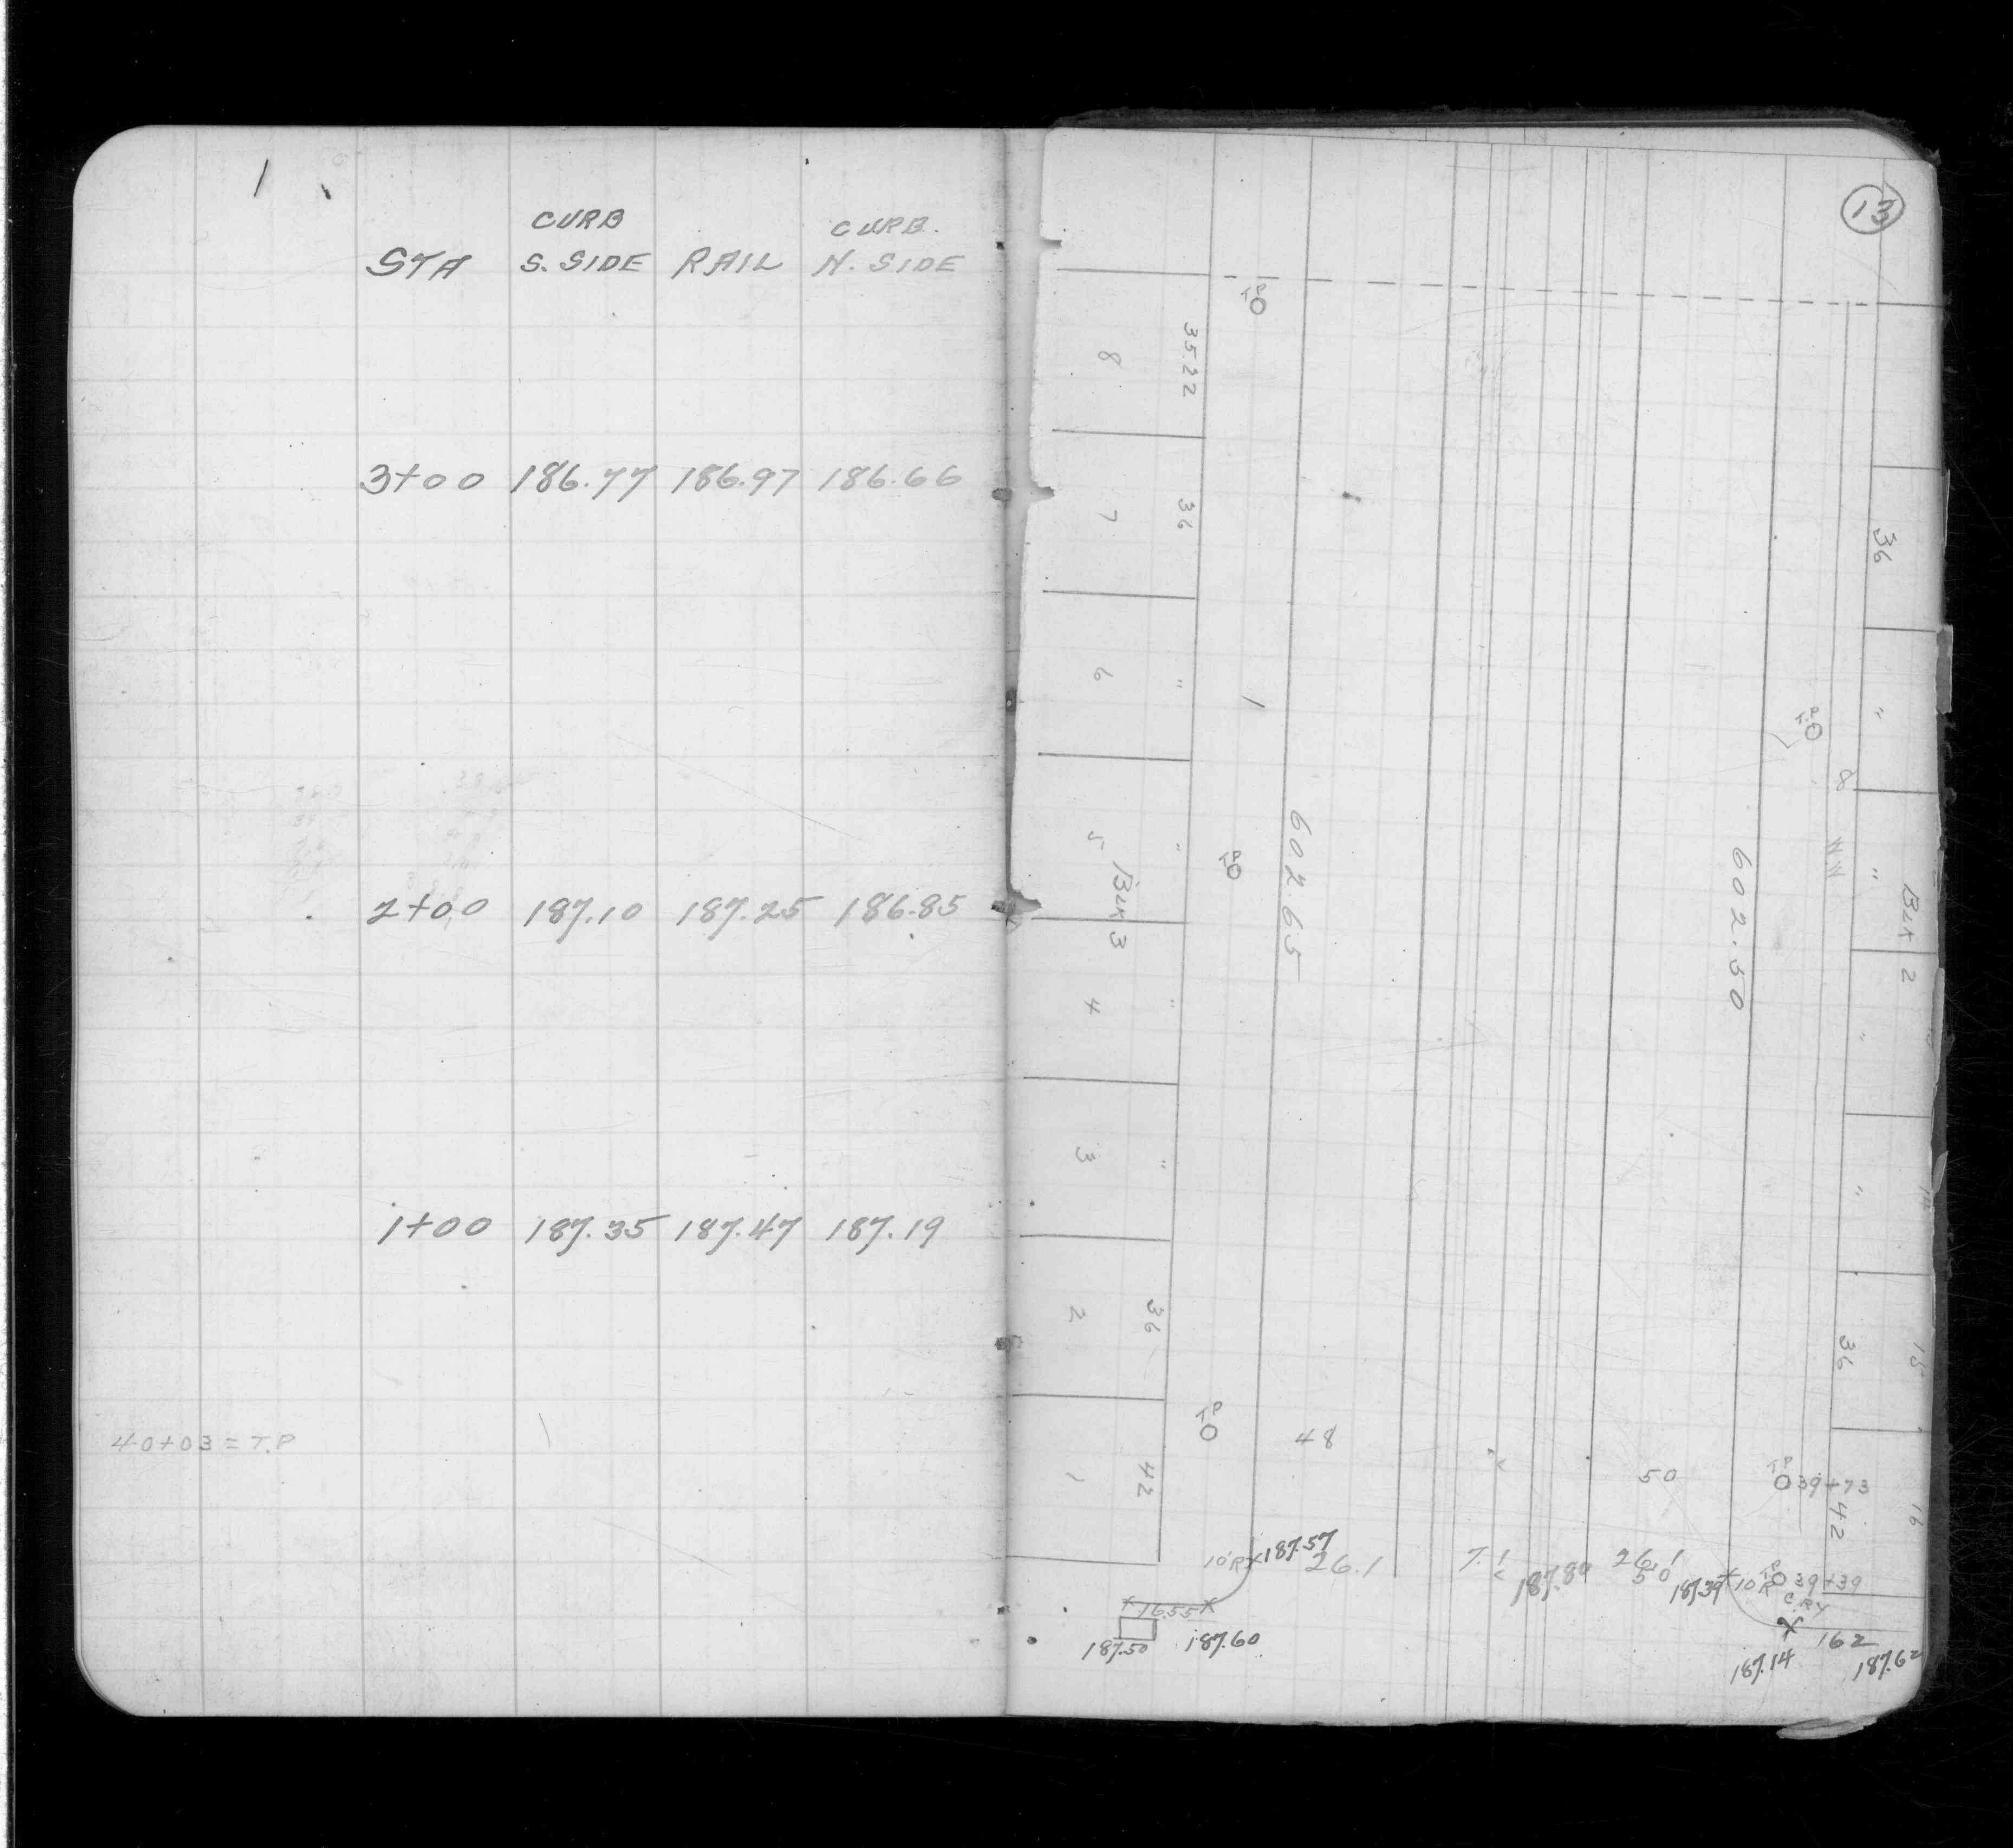 1
CURB CURB.
STA S. SIDE RAIL N. SIDE
3+00 186.77 186.97 186.66
2+00 187.10 187.25 186.85
1+00 187.35 187.47 187.19
40+03 = T.P
13
TP
35.22
8
36
7
36
"
6
1
TP
"
TP
8
602.65
602.50
"
5
Blk 3
"
Blk 2
"
4
"
"
3
"
36
2
36
15
TP
48
42
1
50
TP 39+73
42
16
10'R 187.57
26.1
7.1
187.80
26.1
50
187.39
10'R
TP 39+39
C.RY
16.55
187.50 187.60
162
187.14 187.62